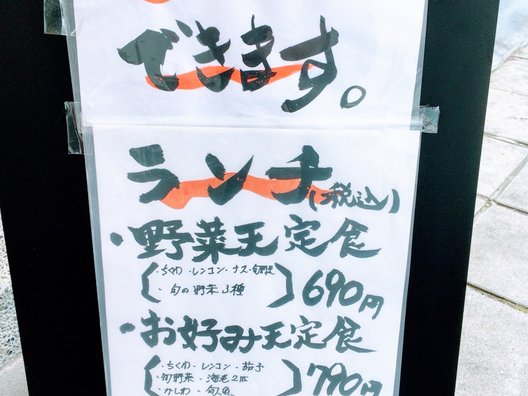 できます。
ランチ(税込)
・野菜天定食
・ちくわ・レンコン・ナス
・旬の野菜3種
690円
・お好み天定食
・ちくわ・レンコン・茄子
・旬野菜・海老2匹
・かしわ・旬魚
790円